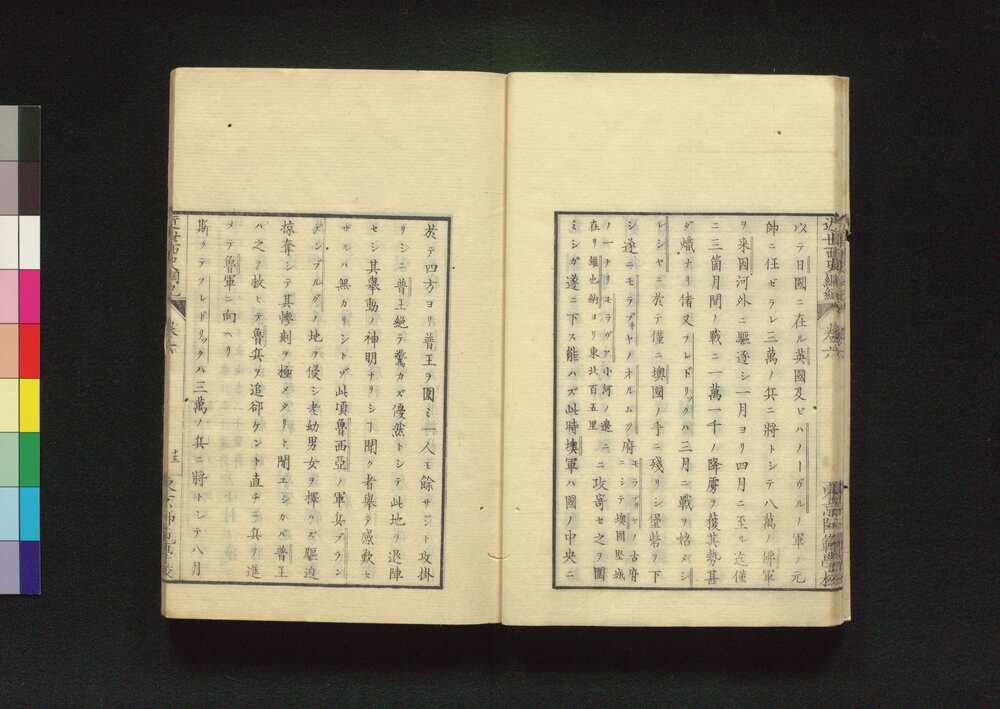 以テ日國ニ在ル英國及ヒハノーヴルノ軍ノ元
帥ニ任ゼラレ三萬ノ兵ニ將トシテ八萬ノ佛軍
ヲ來因河外ニ驅逐シ一月ヨリ四月ニ至ル迄僅
ニ三箇月間ノ戰ニ一萬一千ノ降虜ヲ獲其勢甚
ダ熾ナリ偖又フレドリックハ三月ニ戰ヲ始メシ
レシヤニ於テ僅ニ墺國ノ手ニ殘リシ堡砦ヲ下
シ遂ニモラヴヰヤノオルムツ府
モラヴヰヤノ古府ニシテ墺國堅城
ノ一ナリモラヴア小河ノ邊ニ
在リ維也納ヨリ東北百五里
ニ攻寄セ之ヲ圍
ミシガ遂ニ下ス能ハズ此時墺軍ハ國ノ中央ニ
於テ四方ヨリ普王ヲ圍ミ一人モ餘サジト攻掛
リシニ普王絶テ驚カズ優然トシテ此地ヲ退陣
セシ其擧動ノ神明ナリシヿ聞ク者擧テ感歎セ
ザルハ無カリシトゾ此頃魯西亞ノ軍兵ブラン
デンブルグノ地ヲ侵シ老幼男女ヲ擇バズ驅迫
掠奪シテ其慘刻ヲ極メタリト聞エシカバ普王
ハ之ヲ救ヒテ魯兵ヲ追卻ケント直チニ兵ヲ進
メテ魯軍ニ向ヘリ
斯クテフレドリックハ三萬ノ兵ニ將トシテ八月
卷六